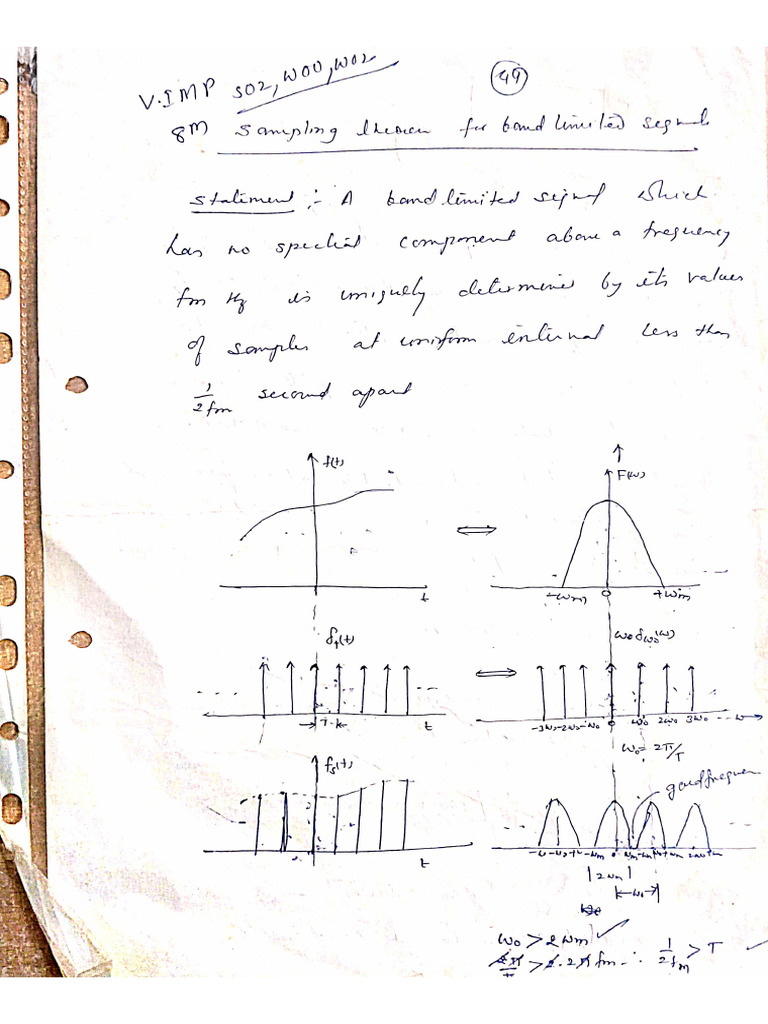 V.IMP S02, W00, W02
49
8M Sampling theorem for band limited signals
Statement :- A band limited signal which
has no spectral component above a frequency
fm Hz is uniquely determined by its values
of samples at uniform interval less than
1/2fm second apart
f(t)
F(ω)
⟺
t
-ωm 0 +ωm
δT(t)
ω0 δω0(ω)
⟺
T
t
-3ω0 -2ω0 -ω0 0 ω0 2ω0 3ω0 ω
ω0 = 2π/T
fs(t)
t
-ωm 0 ωm
|2ωm|
ω0
ω0 > 2ωm
2π/T > 2.2π fm ∴ 1/2fm > T